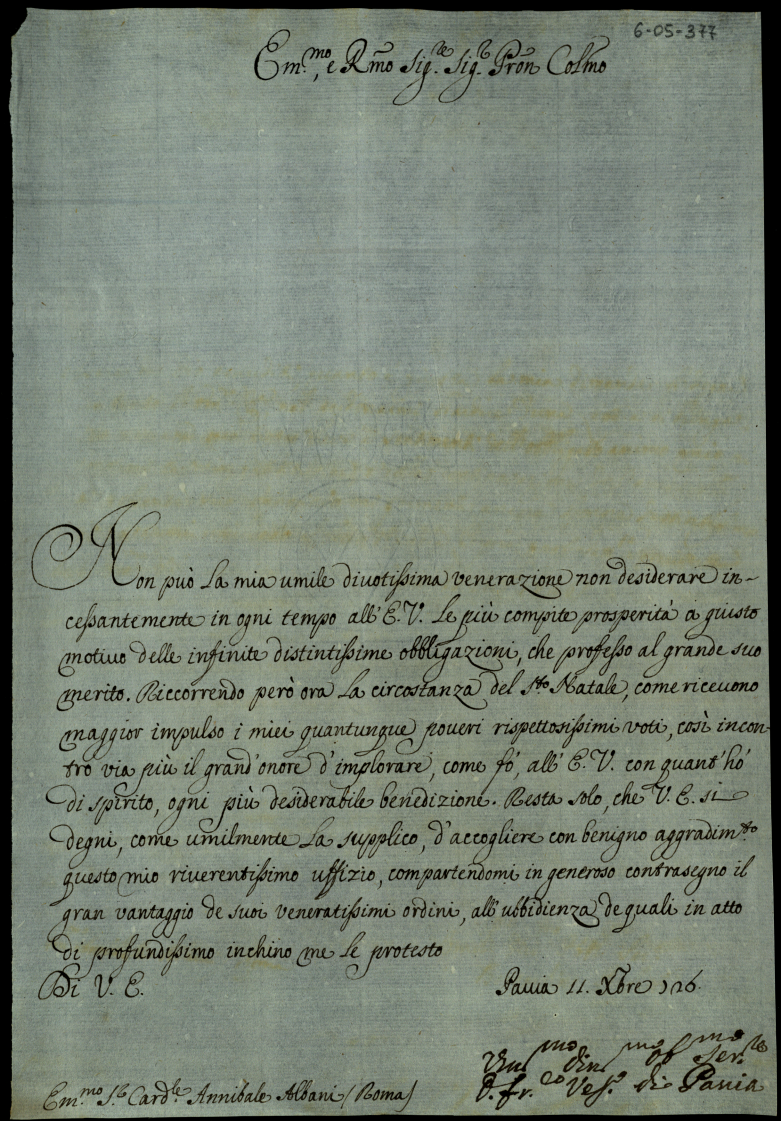 6-05-377
Em.mo, e Rmo Sig.re Sig.r Pron Colmo
Non può la mia umile divotissima venerazione non desiderare in-
cessantemente in ogni tempo all'E.V. le più compite prosperità a giusto
motivo delle infinite distintissime obbligazioni, che professo al grande suo
merito. Riccorrendo però ora la circostanza del S.to Natale, come ricevono
maggior impulso i miei quantunque poveri rispettosissimi voti, così incon-
tro via più il grand'onore d'implorare, come fò, all'E.V. con quant'hò
di spirito, ogni più desiderabile benedizione. Resta solo, che V.E. si
degni, come umilmente la supplico, d'accogliere con benigno aggradim.to
questo mio riverentissimo uffizio, compartendomi in generoso contrasegno il
gran vantaggio de suoi veneratissimi ordini, all'ubbidienza de quali in atto
di profundissimo inchino me le protesto
Di V. E. Pavia 11. Xbre 726.
mo mo mo Ser.re
Em.mo S.r Card.le Annibale Albani (Roma) Vesc.o di Pavia